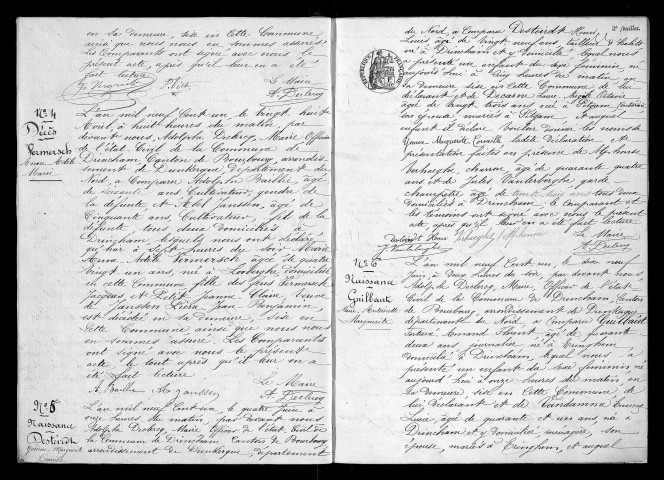 en sa demeure, sise en cette Commune
ainsi que nous nous en sommes assurés
Les Comparants ont signé avec nous le
présent acte, après qu'il leur en a été
fait lecture
Le Maire
A. Declercq
N° 4
Décès
Vermersch
Anne Adèle
Marie
L'an mil neuf Cent un le vingt huit
Avril, à huit heures du matin, par
devant nous, Adolphe Declercq, Maire Officier
de l'état Civil de la Commune de
Drincham Canton de Bourbourg, arrondis-
sement de Dunkerque, département du
Nord, a Comparu Adolphe Baillie âgé
de soixante ans Cultivateur, gendre de
la défunte et Abel Janssen, âgé de
Cinquante ans Cultivateur, fils de la
défunte tous deux domiciliés à
Drincham lesquels nous ont déclaré
qu'hier à sept heures du soir, Marie
Anne Adèle Vermersch âgée de quatre
vingt un ans, née à Looberghe domiciliée
en cette Commune fille des feus Vermersch
Jacques et Jeanne Claire, veuve
de Janssen Pierre Jean Benjamin
est décédée en sa demeure, sise en
Cette Commune, ainsi que nous nous
en sommes assuré. Les Comparants
ont signé avec nous le présent
acte, le tout après qu'il leur en a
été fait lecture
A. Baillie A. Janssen Le Maire
A. Declercq
N° 5
Naissance
Desteirdt
L'an mil neuf Cent un le quatre Juin à
onze heures du matin, par devant nous
Adolphe Declercq, Maire Officier de l'état Civil de
la Commune de Drincham, Canton de Bourbourg
arrondissement de Dunkerque, département
2e feuillet.
du Nord, a Comparu Desteirdt Henri
Louis, âgé de vingt neuf ans, tailleur d'habits
né à Drincham et y domicilié lequel nous
a présenté un enfant du sexe féminin né
aujourd'hui à Cinq heures du matin en
sa demeure sise en cette Commune de lui
déclarant et de
âgée de vingt trois ans née à Pitgam
son épouse mariés à Pitgam, et auquel
enfant il déclare vouloir donner les noms de
Marguerite Camille ladite déclaration et
présentation faites en présence de Alphonse
Verhaeghe, charron, âgé de quarante quatre
ans et de Jules Vanlerberghe garde
champêtre âgé de ans tous deux
domiciliés à Drincham, le Comparant et
les témoins ont signé avec nous le présent
acte, après qu'il leur en a été fait lecture
Desteirdt Henri Verhaeghe Alphonse Le Maire
A. Declercq
N° 6
Naissance
Guillaut
Marie Antoinette
Marguerite
L'an mil neuf Cent un, le dix neuf
Juin, à deux heures du soir, par devant nous,
Adolphe Declercq, Maire Officier de l'état
Civil de la Commune de Drincham, Canton
de Bourbourg arrondissement de Dunkerque
département du Nord, a Comparu Guillaut
Amand Florent âgé de quarante
deux ans journalier né à Eringhem
domicilié à Drincham, lequel nous a
présenté un enfant du sexe féminin né
aujourd'hui à onze heures du matin en
sa demeure, sise en cette Commune de
lui déclarant et de Vandamme Emma
Lucie âgée de quarante et un ans, née à
Drincham et y domiciliée ménagère, son
épouse, mariés à Eringhem, et auquel